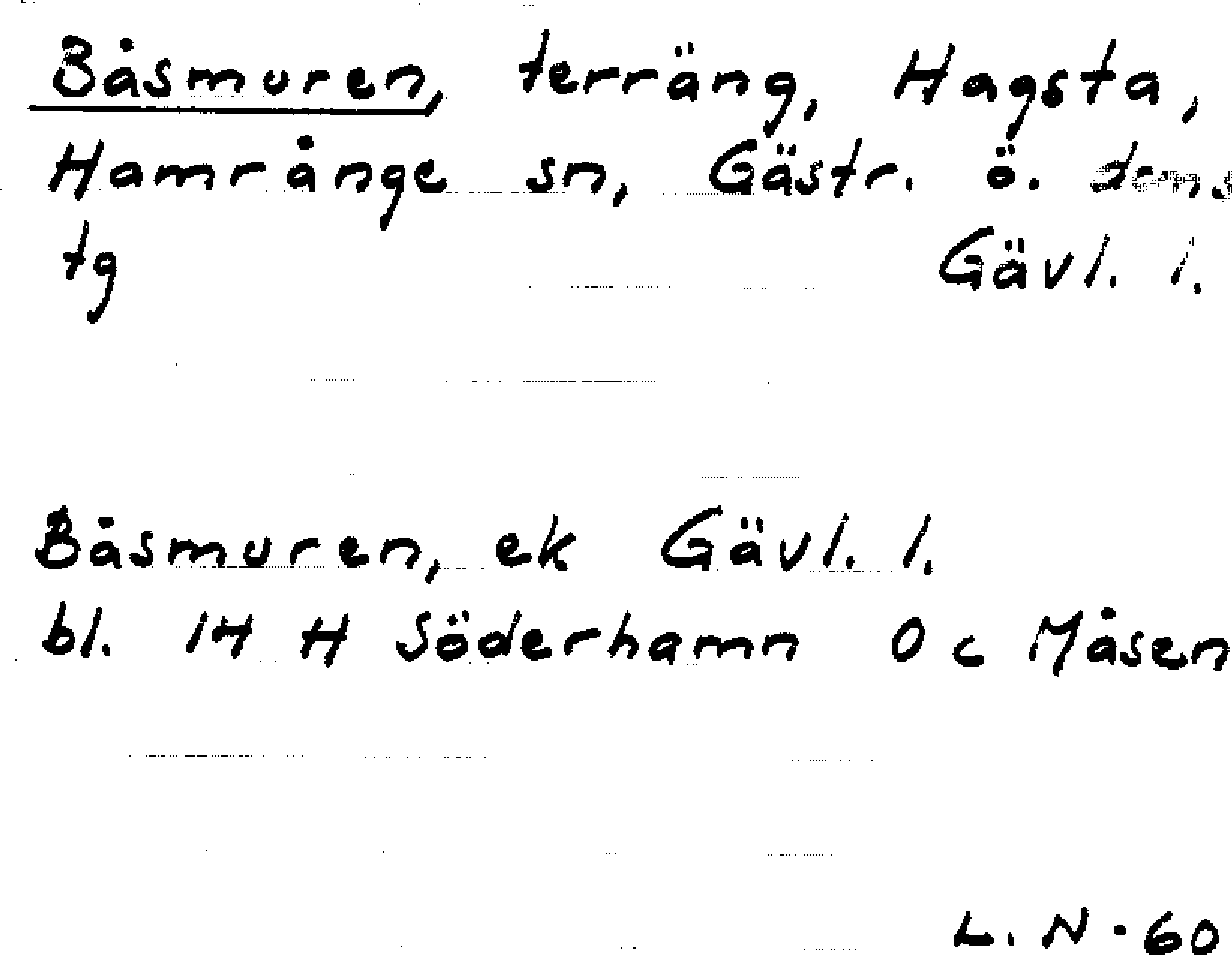 Båsmuren, terräng, Hagsta,
Hamrånge sn, Gästr. ö. doms
tg Gävl. l.
Båsmuren, ek Gävl. l.
bl. 14 H Söderhamn 0 c Måsen
L. N - 60